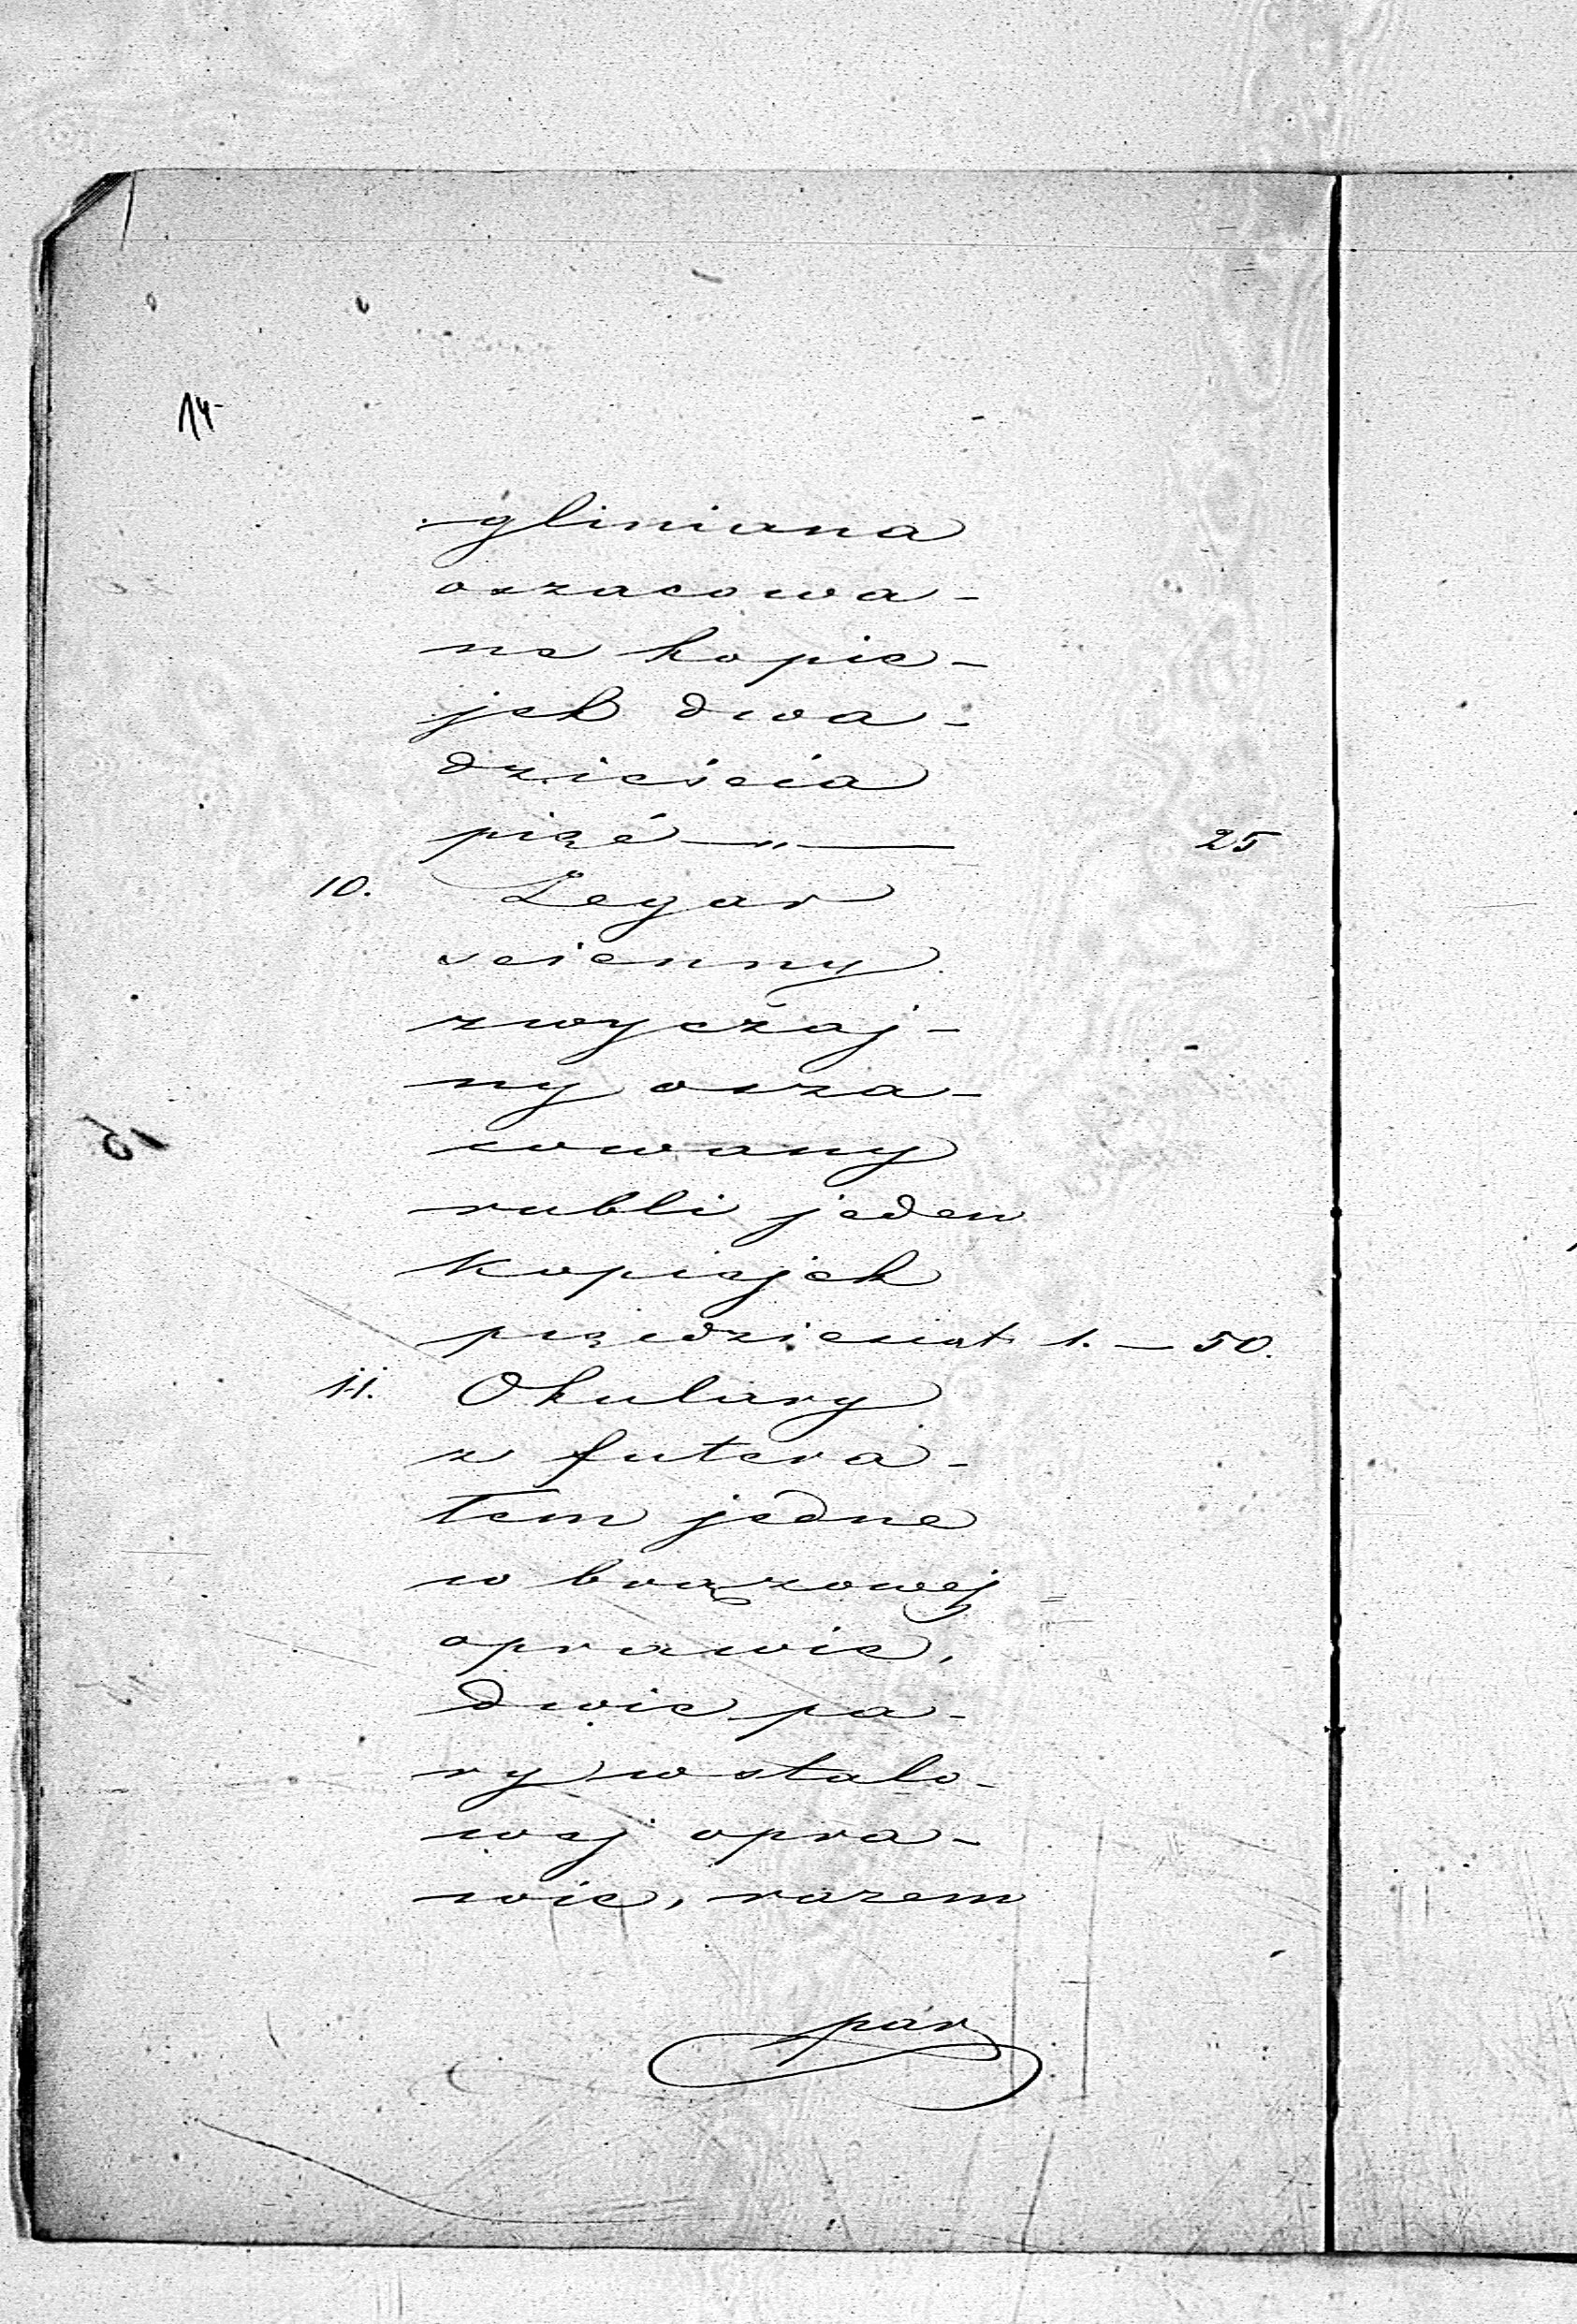 14
gliniana
oszacowa-
na kopie-
jek dwa-
dzieścia
pięć — „ — 25
10. Zegar
scienny
zwyczaj-
ny osza-
cowany
rubli jeden
kopiejek
pięćdziesiąt 1. — 50.
11. Okulary
z futera-
łem jedne
w brązowej
oprawie,
dwie pa-
ry w stalo-
wej opra-
wie, razem
par